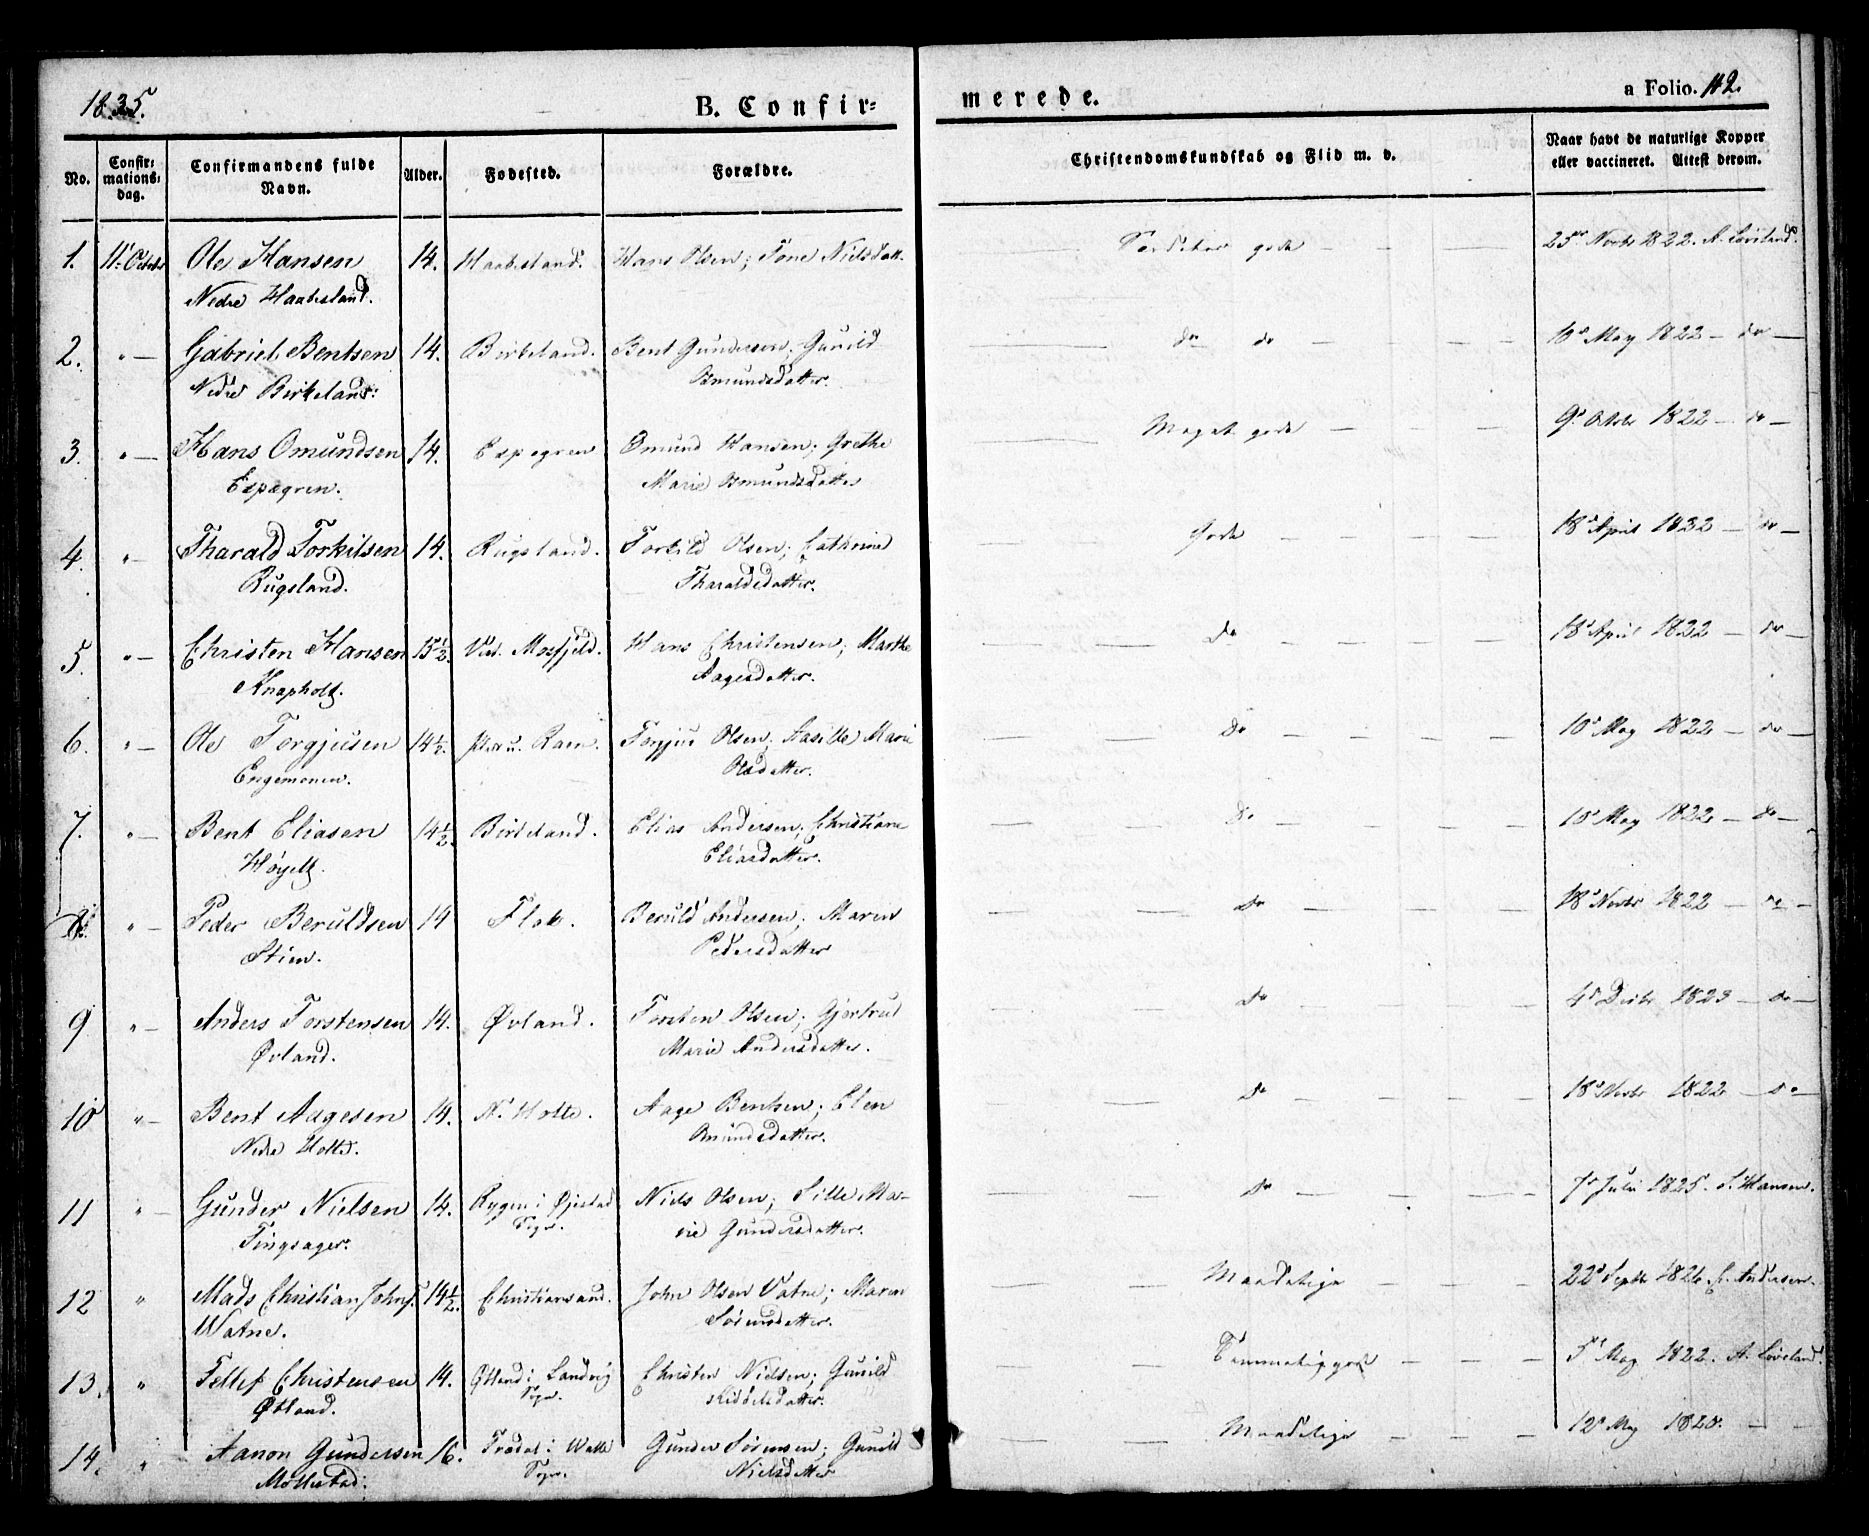 1835.
B. Confirmerede.
a Folio. 112.
No. Confirmationsdag. Confirmandens fulde Navn. Alder. Fødested. Forældre. Christendomskundskab og Flid m. v. Naar havt de naturlige Kopper eller vaccineret. Attest derom.
1. 11. Octobr Ole Hansen 14. Haabesland. Hans Olsen; Tone Nielsdatt. gode 25de Novbr 1822. A. Løveland.
Nedre Haabesland.
2. " — Gabriel Bentsen 14. Birkeland. Bent Gundersen; Gunild do do 10de May 1822 — do —
Nedre Birkeland: Omundsdatter.
3. " — Hans Omundsen 14. Espegren Omund Hansen; Grethe Meget gode 9de Octobr 1822 — do —
Espegren. Marie Omundsdatter
4. " — Tharald Torkilsen 14. Rugsland. Torkild Olsen; Cathrine Gode 18de April 1832 — do —
Rugsland. Tharaldsdatter.
5 " — Christen Hansen 15½. Vest. Mosfjeld. Hans Christensen; Marthe Do 18de April 1822 — do —
Knapholt. Aagesdatter.
6. " — Ole Torgjusen 14½. Raen. Torgjus Olsen; Aasille Marie Do 10de May 1822 — do —
Engemonen. Olsdatter.
7. " — Bent Eliasen 14½. Birkeland. Elias Andersen; Christiane Do 10de May 1822 — do —
Høgelt. Eliasdatter.
8. " — Peder Beruldsen 14 Flak. Beruld Andersen; Maren Do 18de Novbr 1822 — do —
Stien. Pedersdatter
9 " — Anders Torstensen 14. Øvland. Torsten Olsen; Gjertrud Do 4de Decbr 1823 — do —
Øvland. Marie Andersdatter.
10 " — Bent Aagesen 14. N. Holte. Aage Bentsen; Elen Do 18de Novbr 1822 — do —
Nedre Holte. Omundsdatter.
11 " — Gunder Nielsen 14. Rygen i Øiestad Niels Olsen; Sille Ma- Do 7de Juli 1825. S. Hansen.
Tingsager. Sogn. rie Gundersdatter.
12 " Mads Christian Johns. 14½. Christiansand. John Olsen Vatne; Maren Maadelige 22de Septbr 1826. C. Andersen.
Watne. Sørensdatter.
13. " Tellef Christensen 14. Østland i Landvig Christen Nielsen; Gunild Temmelig gode 5de May 1822. A. Løveland.
Østland. Sogn.
14. " Aanon Gundersen 16. Tredal i Walle Gunder Sørensen; Gunild Maadelige 12de May 1820. —
Møllestad. Sogn. Nielsdatter